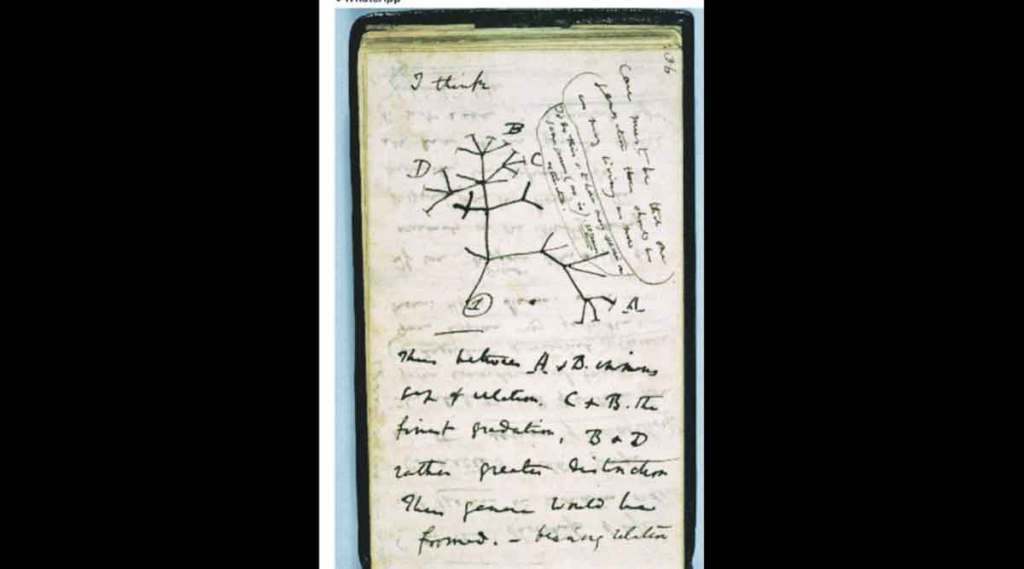 WhatsApp
36
I think
Case must be that one
generation then should be
as many living as now
To do this & to have many species in
same genus (as is) requires
extinction.
B
C
D
A
1
Thus between A & B. immens
gap of relation. C & B. the
finest gradation, B & D
rather greater distinction
Thus genera would be
formed. — bearing relation